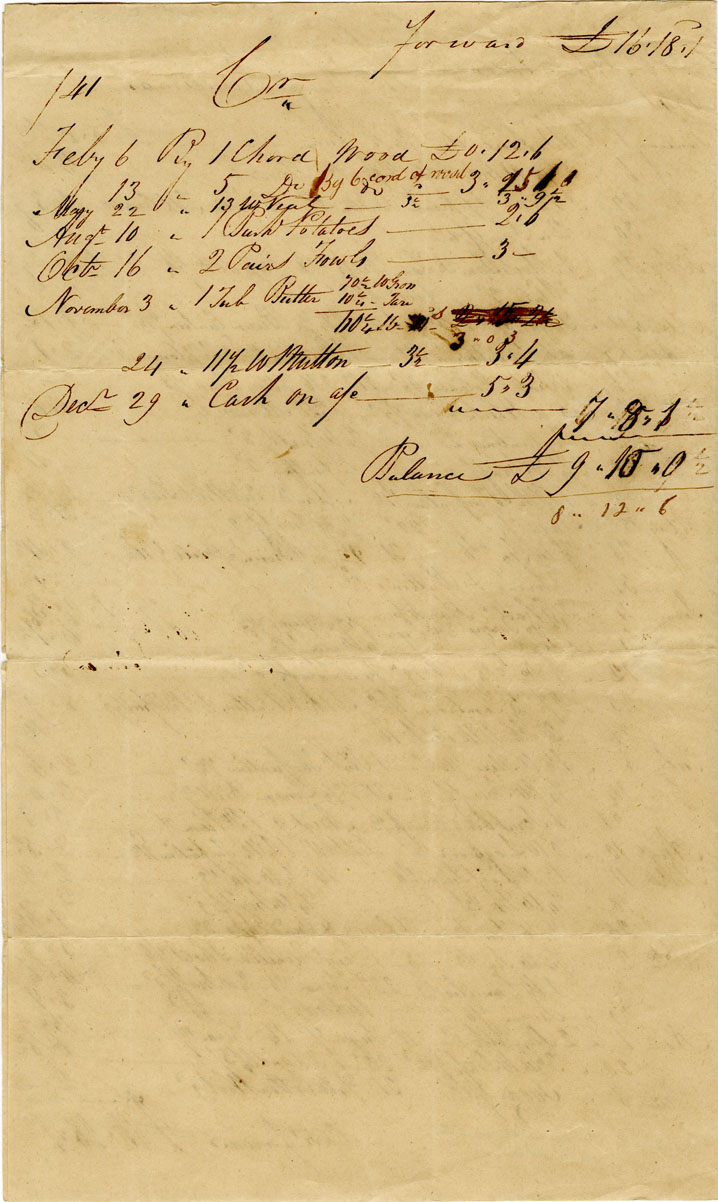 forward £16.18.1
/41 Cr
Feby 6 By 1 Chord Wood £0.12.6
13 " 5 Do By 6 cord of wood 3 "
May 22 " 13 lb Veal 3½ 3 " 9½
Augt 10 " 1 Bush Potatoes 2.6
Octr 16 " 2 Pairs Fowls 3 –
November 3 " 1 Tub Butter
10½ – Tare
60
3 " 0 " 3
24 " 11½ lb Mutton 3½ 3.4
Decr 29 " Cash on a/c 5 " 3
7 " 8 " 1½
Balance £ 9 " 10 " 0½
8 " 12 " 6